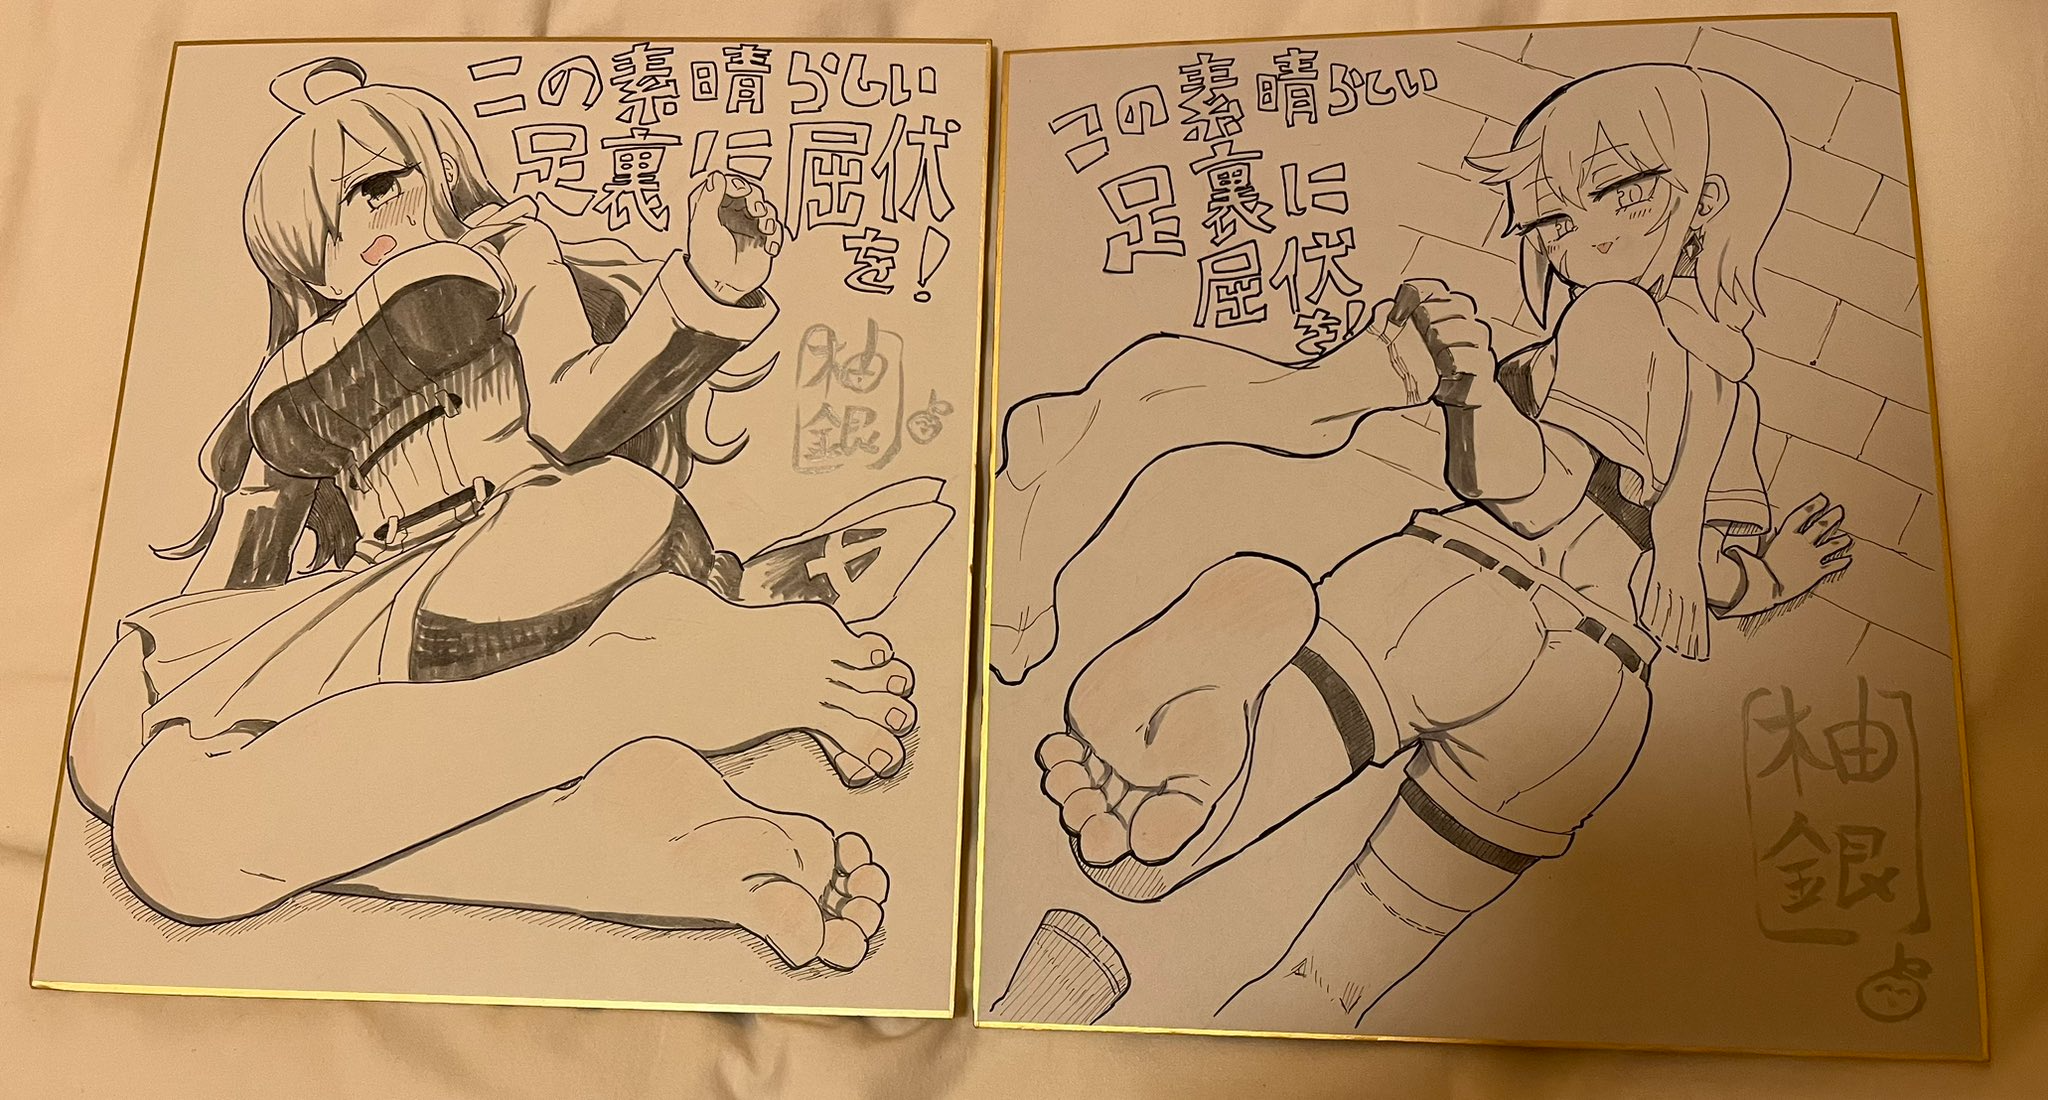 この素晴らしい
足裏に屈伏
を!
柚
銀
この素晴らしい
足裏に
屈伏
を!
柚
銀